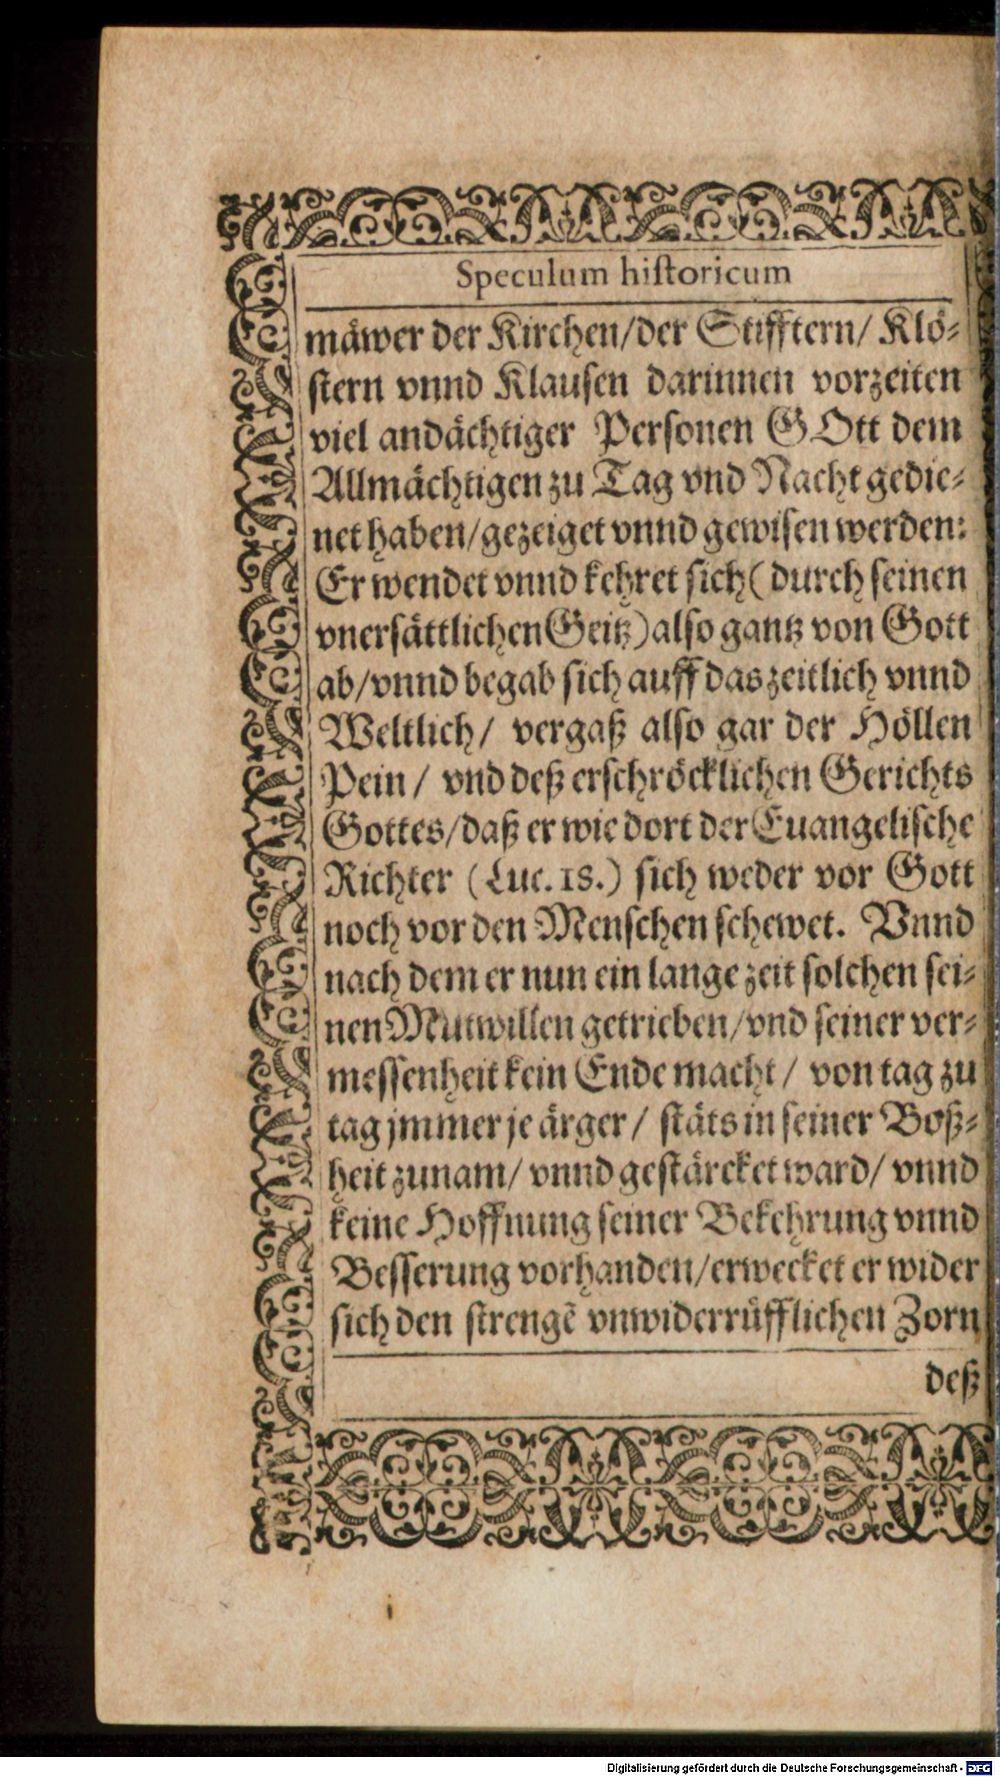 Speculum historicum
mäwer der Kirchen/der Stifftern/ Klö-
stern vnnd Klausen darinnen vorzeiten
viel andächtiger Personen GOtt dem
Allmächtigen zu Tag vnd Nacht gedie-
net haben/gezeiget vnnd gewisen werden:
Er wendet vnnd kehret sich (durch seinen
vnersättlichen Geitz) also gantz von Gott
ab/vnnd begab sich auff das zeitlich vnnd
Weltlich/ vergaß also gar der Höllen
Pein/ vnd deß erschröcklichen Gerichts
Gottes/daß er wie dort der Euangelische
Richter (Luc. 18.) sich weder vor Gott
noch vor den Menschen schewet. Vnnd
nach dem er nun ein lange zeit solchen sei-
nen Mutwillen getrieben/vnd seiner ver-
messenheit kein Ende macht/ von tag zu
tag jmmer je ärger/ stäts in seiner Boß-
heit zunam/ vnnd gestärcket ward/ vnnd
keine Hoffnung seiner Bekehrung vnnd
Besserung vorhanden/erwecket er wider
sich den strengẽ vnwiderrüfflichen Zorn
deß
Digitalisierung gefördert durch die Deutsche Forschungsgemeinschaft - DFG